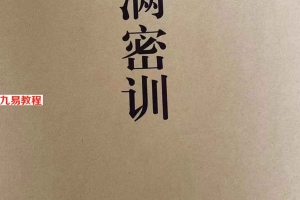 密训
九易教程